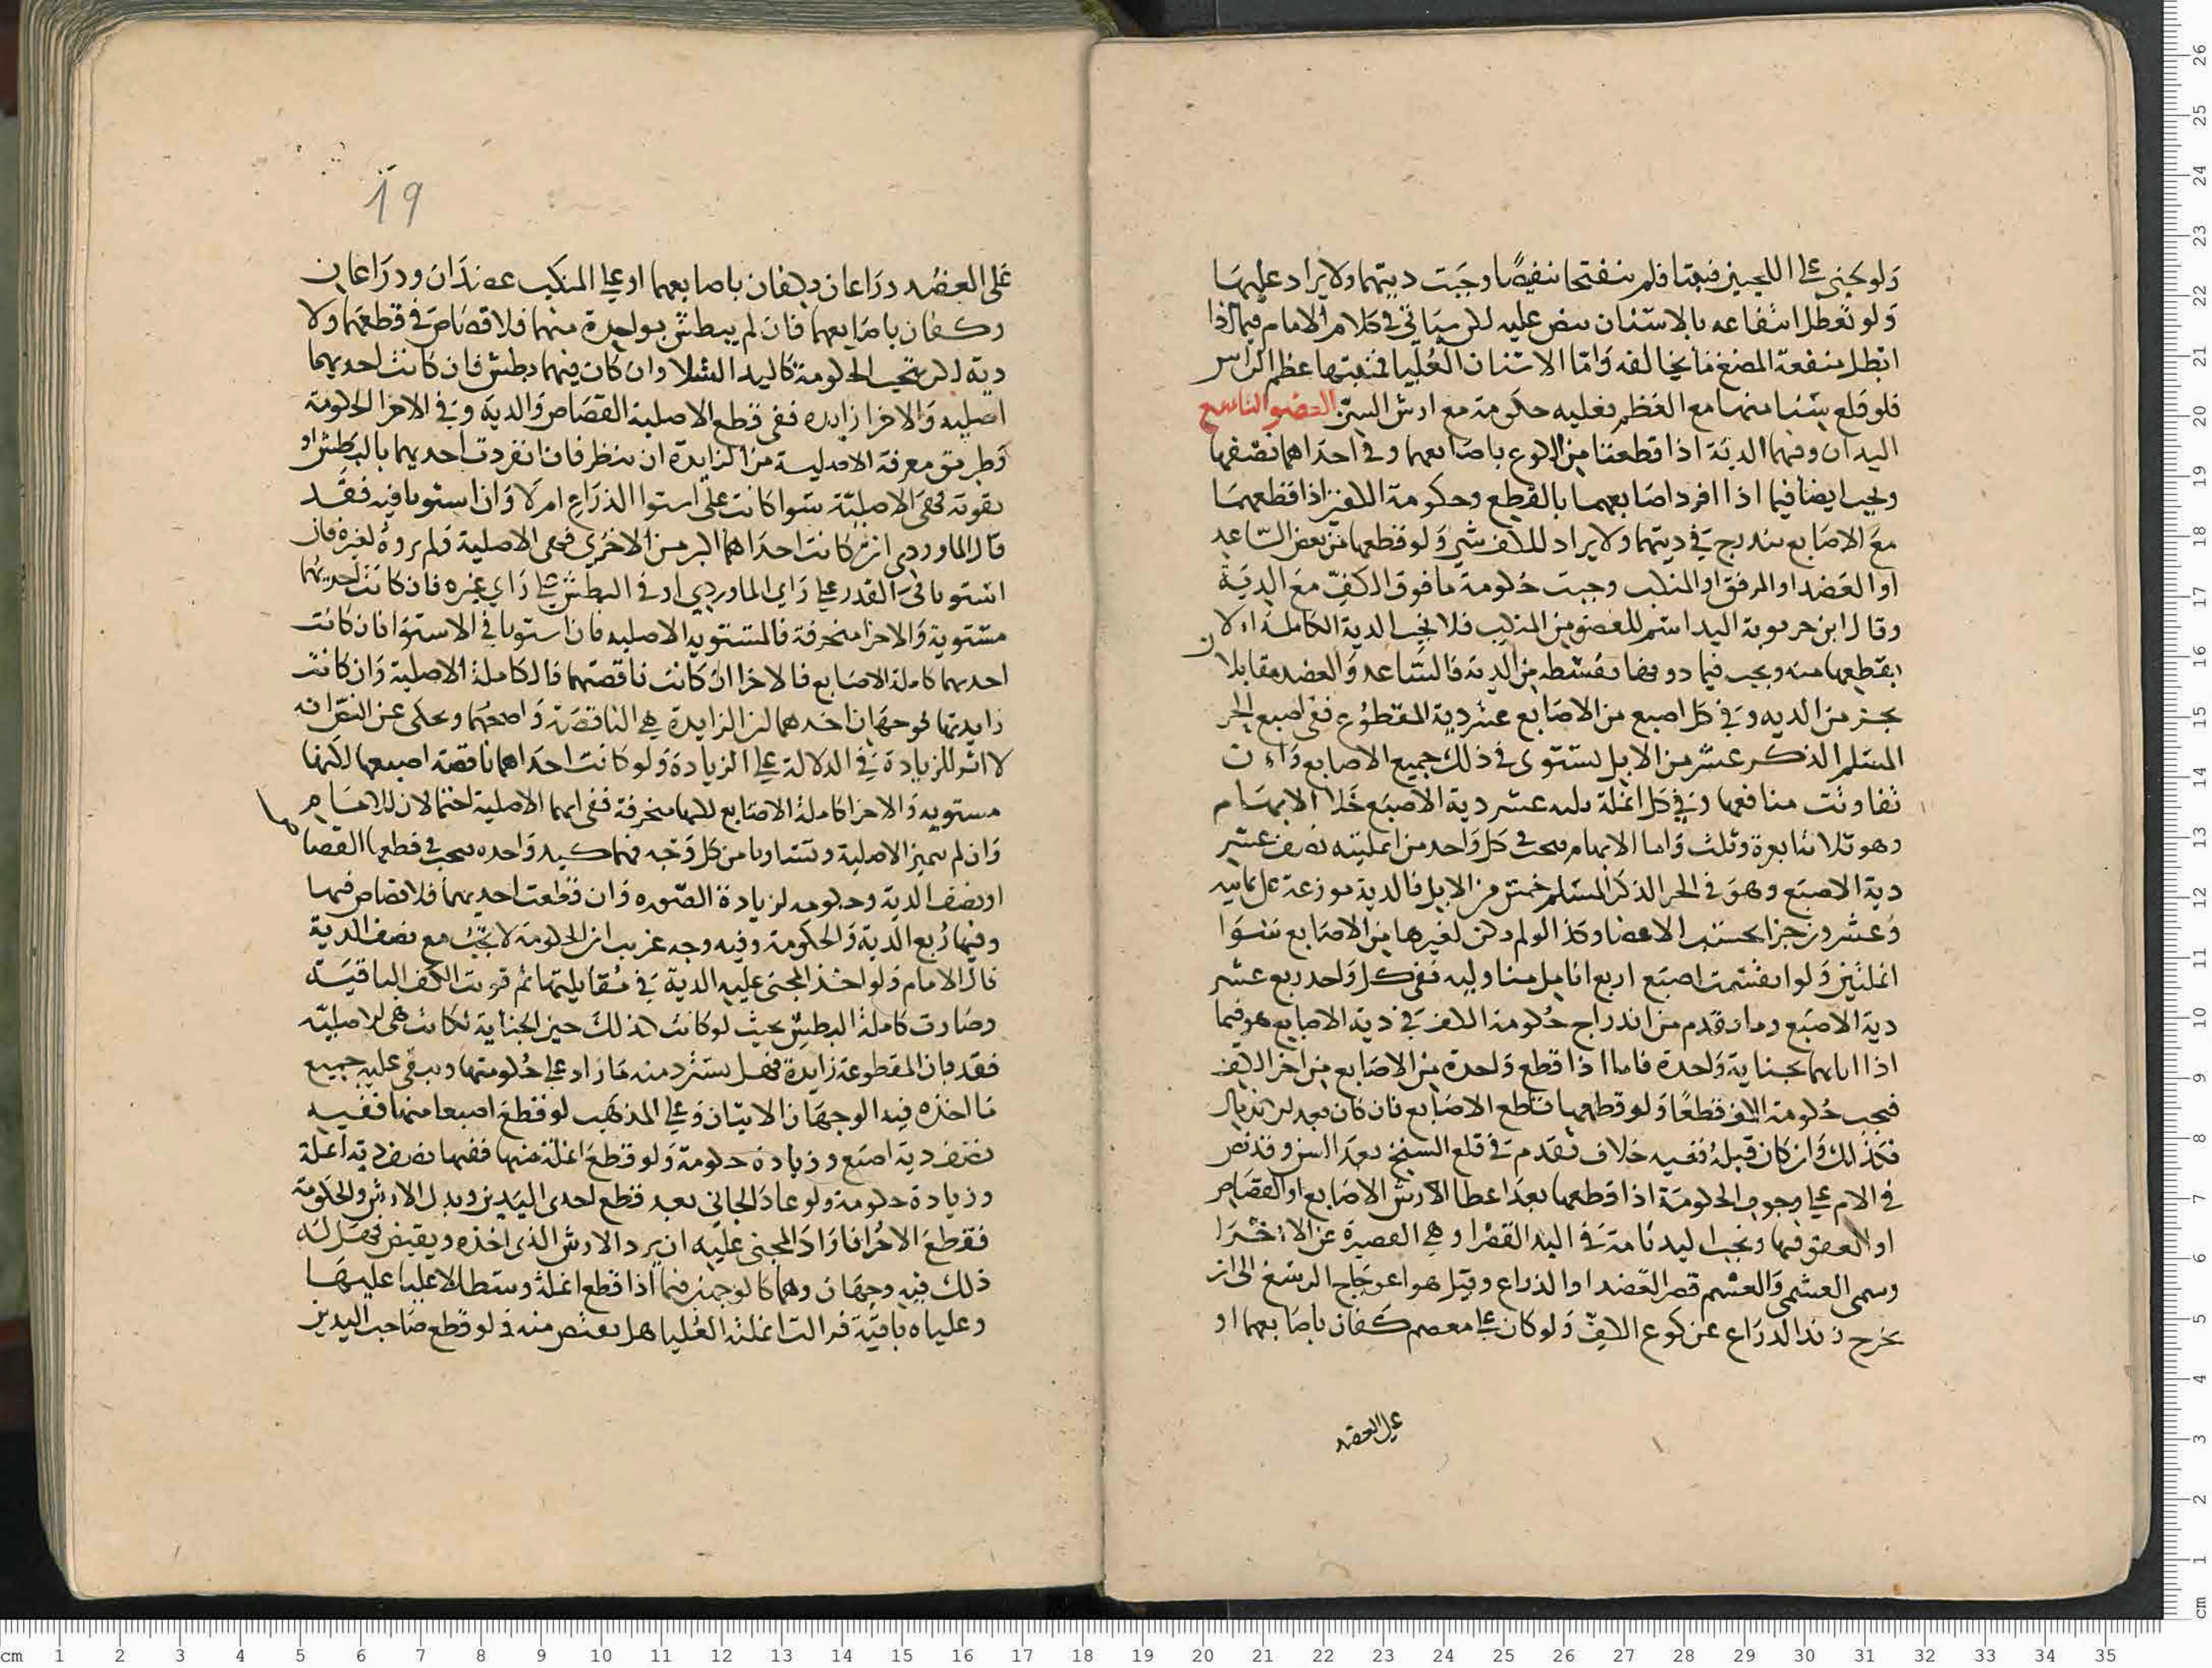 ولو جنى على اللحيين فيبستا فلم ينفتحا وجبت ديتهما ولا يراد عليهما
ولو تعطل انتفاعه بالاسنان نص عليه لكن سياتي في كلام الامام فيما اذا
ابطل منفعة المضغ ما يخالفه واما الاسنان العليا فمنبتها عظم الراس
فلو قلع شيا منها مع العظم فعليه حكومة مع ارش السن العضو التاسع
اليدان وفيهما الدية اذا قطعتا من الكوع باصابعهما وفي احداهما نصفها
ويجب ايضا فيما اذا افرد اصابعهما بالقطع وحكومة الكفين اذا قطعهما
مع الاصابع تندرج في ديتهما ولا يراد للكف شي ولو قطعها من بعض الساعد
او العضد او المرفق او المنكب وجبت حكومة ما فوق الكف مع الدية
وقال ابن حربويه اليد اسم للعضو من المنكب فلا تجب الدية الكاملة الا
بقطعها منه ويجب فيما دونها بقسطه من الدية فالساعد والعضد مقابلان
بجز من الدية وفي كل اصبع من الاصابع عشر دية المقطوع ففي اصبع الحر
المسلم الذكر عشر من الابل يستوي في ذلك جميع الاصابع وان
تفاوتت منافعها وفي كل انملة ثلث عشر دية الاصبع خلا الابهام
وهو ثلاثة ابعرة وثلث واما الابهام فيجب في كل واحد من انملتيه نصف عشر
دية الاصبع وهو في الحر الذكر المسلم خمس من الابل فالدية موزعة على ثمانية
وعشرين جزا بحسب الاعضا وكذا لو لم يكن لغيرها من الاصابع سوا
انملتين ولو انقسمت اصبع اربع انامل متساوية ففي كل واحد ربع عشر
دية الاصبع وما تقدم من اندراج حكومة الكف في دية الاصابع هو فيما
اذا ابانهما بجناية واحدة فاما اذا قطع واحدة من الاصابع من اخر الكف
فيجب حكومة الكف قطعا ولو قطعهما قاطع الاصابع فان كان بعد الاندمال
فكذلك وان كان قبله ففيه خلاف تقدم في قلع السنخ بعد السن وقد نص
في الام على وجوب الحكومة اذا قطعها بعد اعطا الارش الاصابع او القصاص
او العفو فيها وتجب اليد تامة في اليد القصرا وهي القصيرة عن الاخرا
وسمي العسم والعسم قصر العضد او الذراع وقيل هو اعوجاج الرسغ الى ان
يخرج زند الذراع عن كوع الكف ولو كان على معصم كفان باصابعهما او
على العضد
19
على العضد ذراعان وكفان باصابعهما او على المنكب عضدان وذراعان
وكفان باصابعهما فان لم يبطش بواحدة منهما فلا قصاص في قطعهما ولا
دية لكن تجب الحكومة كاليد الشلا وان كان فيهما بطش فان كانت احديهما
اصلية والاخرا زايدة ففي قطع الاصلية القصاص والدية وفي الاخرا الحكومة
وطريق معرفة الاصلية من الزايدة ان ينظر فان انفردت احديهما بالبطش او
بقوته فهي الاصلية سوا كانت على استوا الذراع ام لا وان استويا فيه فقد
قال الماوردي ان كانت احداهما اكبر من الاخرى فهي الاصلية ولم يروه لغيره فان
استويا في القدر على راي الماوردي او في البطش على راي غيره فان كانت احديهما
مستوية والاخرا منحرفة فالمستوية الاصلية فان استويا في الاستوا فان كانت
احديهما كاملة الاصابع فالاخرا ان كانت ناقصتها فالكاملة الاصلية وان كانت
زايدتها فوجهان احدهما ان الزايدة هي الناقصة واصحهما ويحكى عن النص انه
لا اثر للزيادة في الدلالة على الزيادة ولو كانت احداهما ناقصة اصبعها لكنها
مستوية والاخرا كاملة الاصابع لكنها منحرفة ففي ايهما الاصلية احتمالان للامام
وان لم تتميز الاصلية وتساويا من كل وجه فهما كيد واحدة يجب في قطعهما القصاص
او نصف الدية وحكومة لزيادة الصورة وان قطعت احديهما فلا قصاص فيها
وفيها ربع الدية والحكومة وفيه وجه غريب ان الحكومة لا تجب مع نصف الدية
قال الامام ولو اخذ المجني عليه الدية في مقابلتها ثم قويت الكف الباقية
وصارت كاملة البطش بحيث لو كانت كذلك حين الجناية لكانت هي الاصلية
فقد بان المقطوعة زايدة فهل يسترد منه ما زاد على حكومتها ويبقى عليه جميع
ما اخذه فيه الوجهان الاتيان وعلى المذهب لو قطع اصبعا منها ففيه
نصف دية اصبع وزيادة حكومة ولو قطع انملة منها ففيها نصف دية انملة
وزيادة حكومة ولو عاد الجاني بعد قطع احدى اليدين وبدل الارش والحكومة
فقطع الاخرا فاراد المجني عليه ان يرد الارش الذي اخذه ويقتص فهل له
ذلك فيه وجهان وهما كالوجهين فيما اذا قطع انملة وسطا لا عليا عليها
وعلياه باقية فزالت انملته العليا هل يقتص منه ولو قطع صاحب اليدين